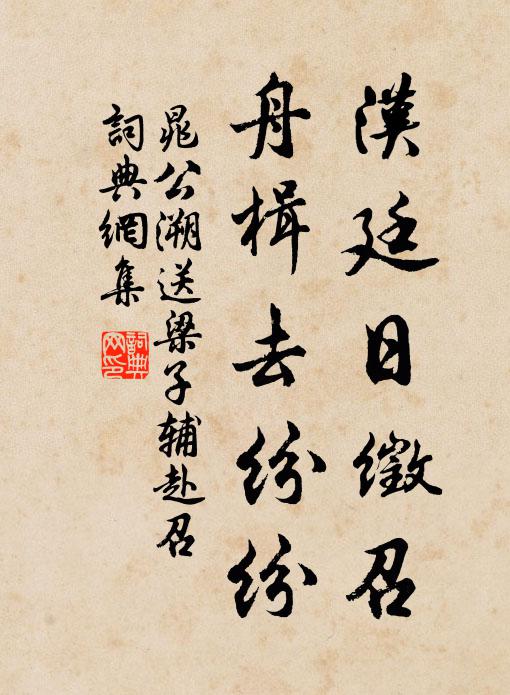 漢廷日徵召
舟楫去紛紛
晁公溯送梁子輔赴召
詞典網集
詞典網印